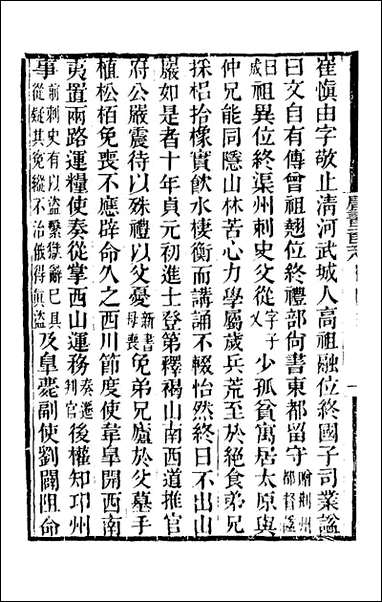 崔愼由字敬止清河武城人高祖融位終國子司業謚
曰文自有傳曾祖翹位終禮部尚書東都留守贈荊州都督謚
曰成祖異位終渠州刺史父從字子乂少孤貧寓居太原與
仲兄能同隱山林苦心力學屬歲兵荒至於絕食弟兄
採梠拾橡實飲水棲衡而講誦不輟怡然終日不出山
巖如是者十年貞元初進士登第釋褐山南西道推官
府公嚴震待以殊禮以父憂新書母喪免弟兄廬於父墓手
植松栢免喪不應辟命久之西川節度使韋皐開西南
夷置兩路運糧使奏從掌西山運務奏遷判官後權知邛州
事前刺史有以盜繫獄辭已具從疑其免縱不治俄得眞盜及皐薨副使劉闢阻命